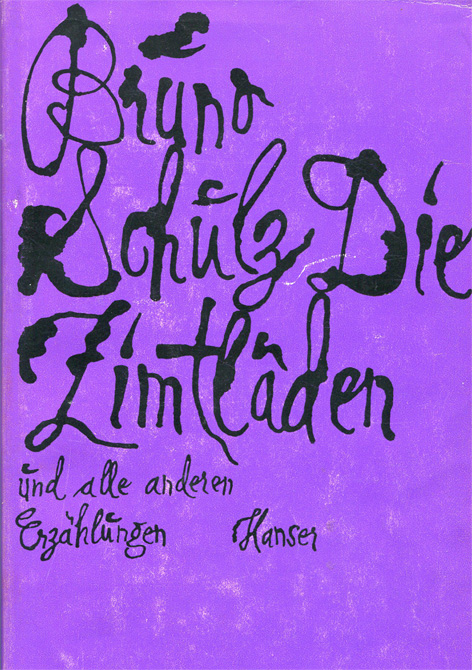 Bruno
Schulz Die
Zimtläden
und alle anderen
Erzählungen Hanser